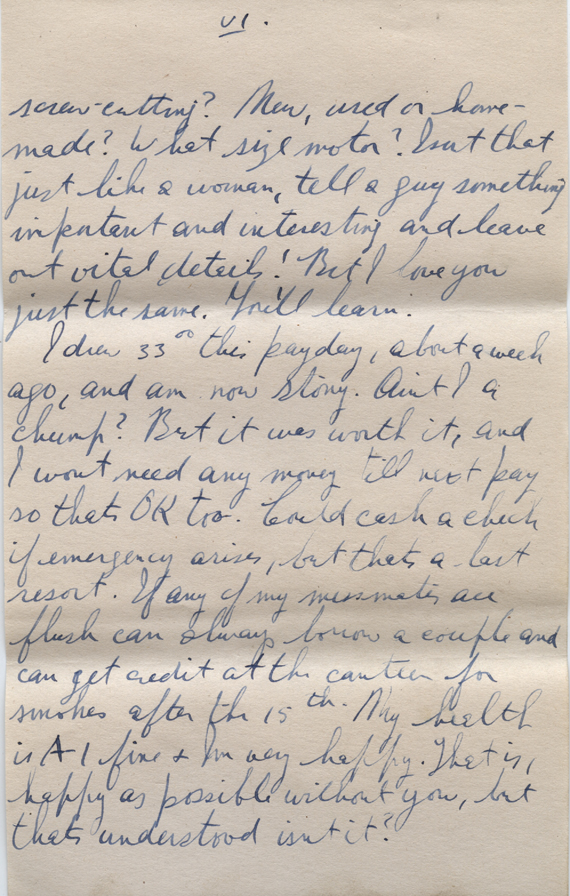 VI.
screw-cutting? New, used or home-
made? What size motor? Isnt that
just like a woman, tell a guy something
important and interesting and leave
out vital details! But I love you
just the same. You'll learn.
I drew 33⁰⁰ this payday, about a week
ago, and am now stony. Aint I a
chump? But it was worth it, and
I wont need any money till next pay
so thats OK too. Could cash a check
if emergency arises, but thats a last
resort. If any of my messmates are
flush can always borrow a couple and
can get credit at the canteen for
smokes after the 15th. My health
is A-1 fine & Im very happy. That is,
happy as possible without you, but
thats understood isnt it?